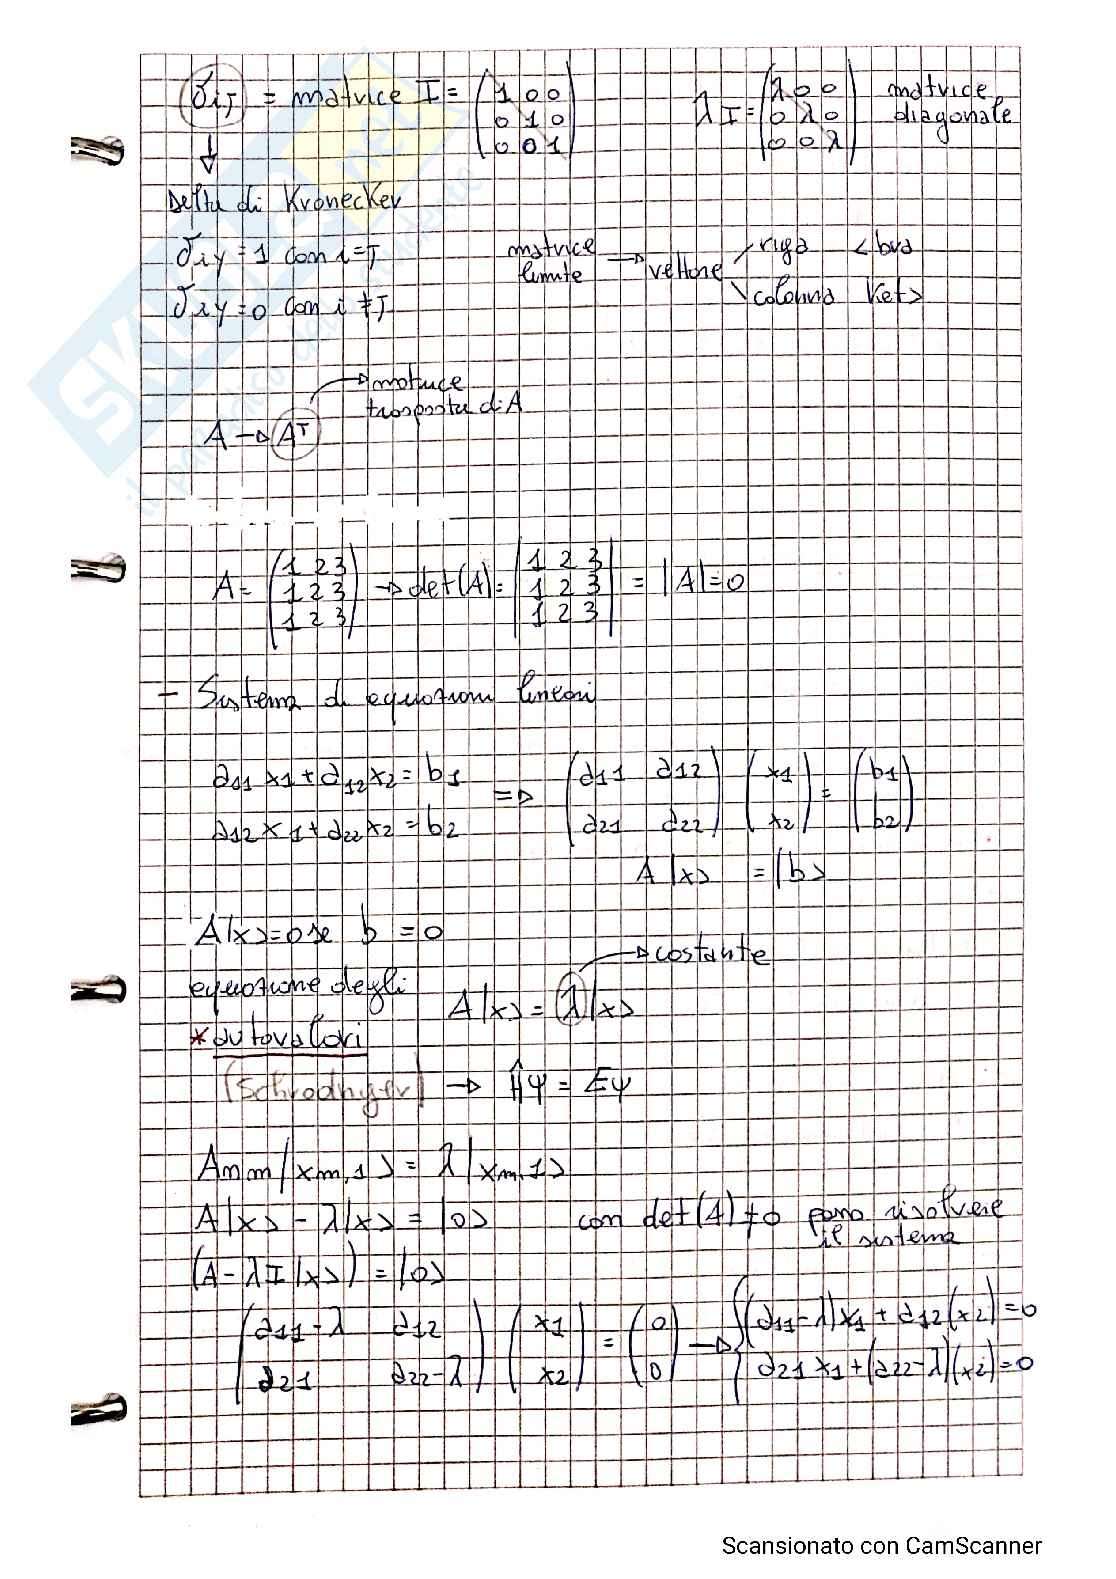 δij = matrice I = (1 0 0
0 1 0
0 0 1)
λI = (λ 0 0
0 λ 0
0 0 λ) matrice diagonale
Delta di Kronecker
δiy = 1 con i=J
δiy = 0 con i ≠ J
matrice limite → vettore
riga < bra
colonna Ket >
A → Aᵀ
matrice
trasposta di A
A = (1 2 3
1 2 3
1 2 3) → det(A) = |1 2 3
1 2 3
1 2 3| = |A| = 0
- Sistema di equazioni lineari
a11 x1 + a12 x2 = b1
a12 x1 + a22 x2 = b2
=> (a11 a12
a21 a22) (x1
x2) = (b1
b2)
A |x> = |b>
A|x> = 0 se b = 0
equazione degli
* autovalori
A|x> = λ|x>
→ costante
(Schrodnger) → Ĥψ = Eψ
Anm |xm,1> = λ |xm,1>
A|x> - λ|x> = |0>
con det(A) ≠ 0 posso risolvere
il sistema
(A - λI |x>) = |0>
(a11-λ a12
a21 a22-λ) (x1
x2) = (0
0) → {(a11-λ)x1 + a12(x2) = 0
a21 x1 + (a22-λ)(x2) = 0
SKUOLA.net
il paradiso dello studente
Scansionato con CamScanner